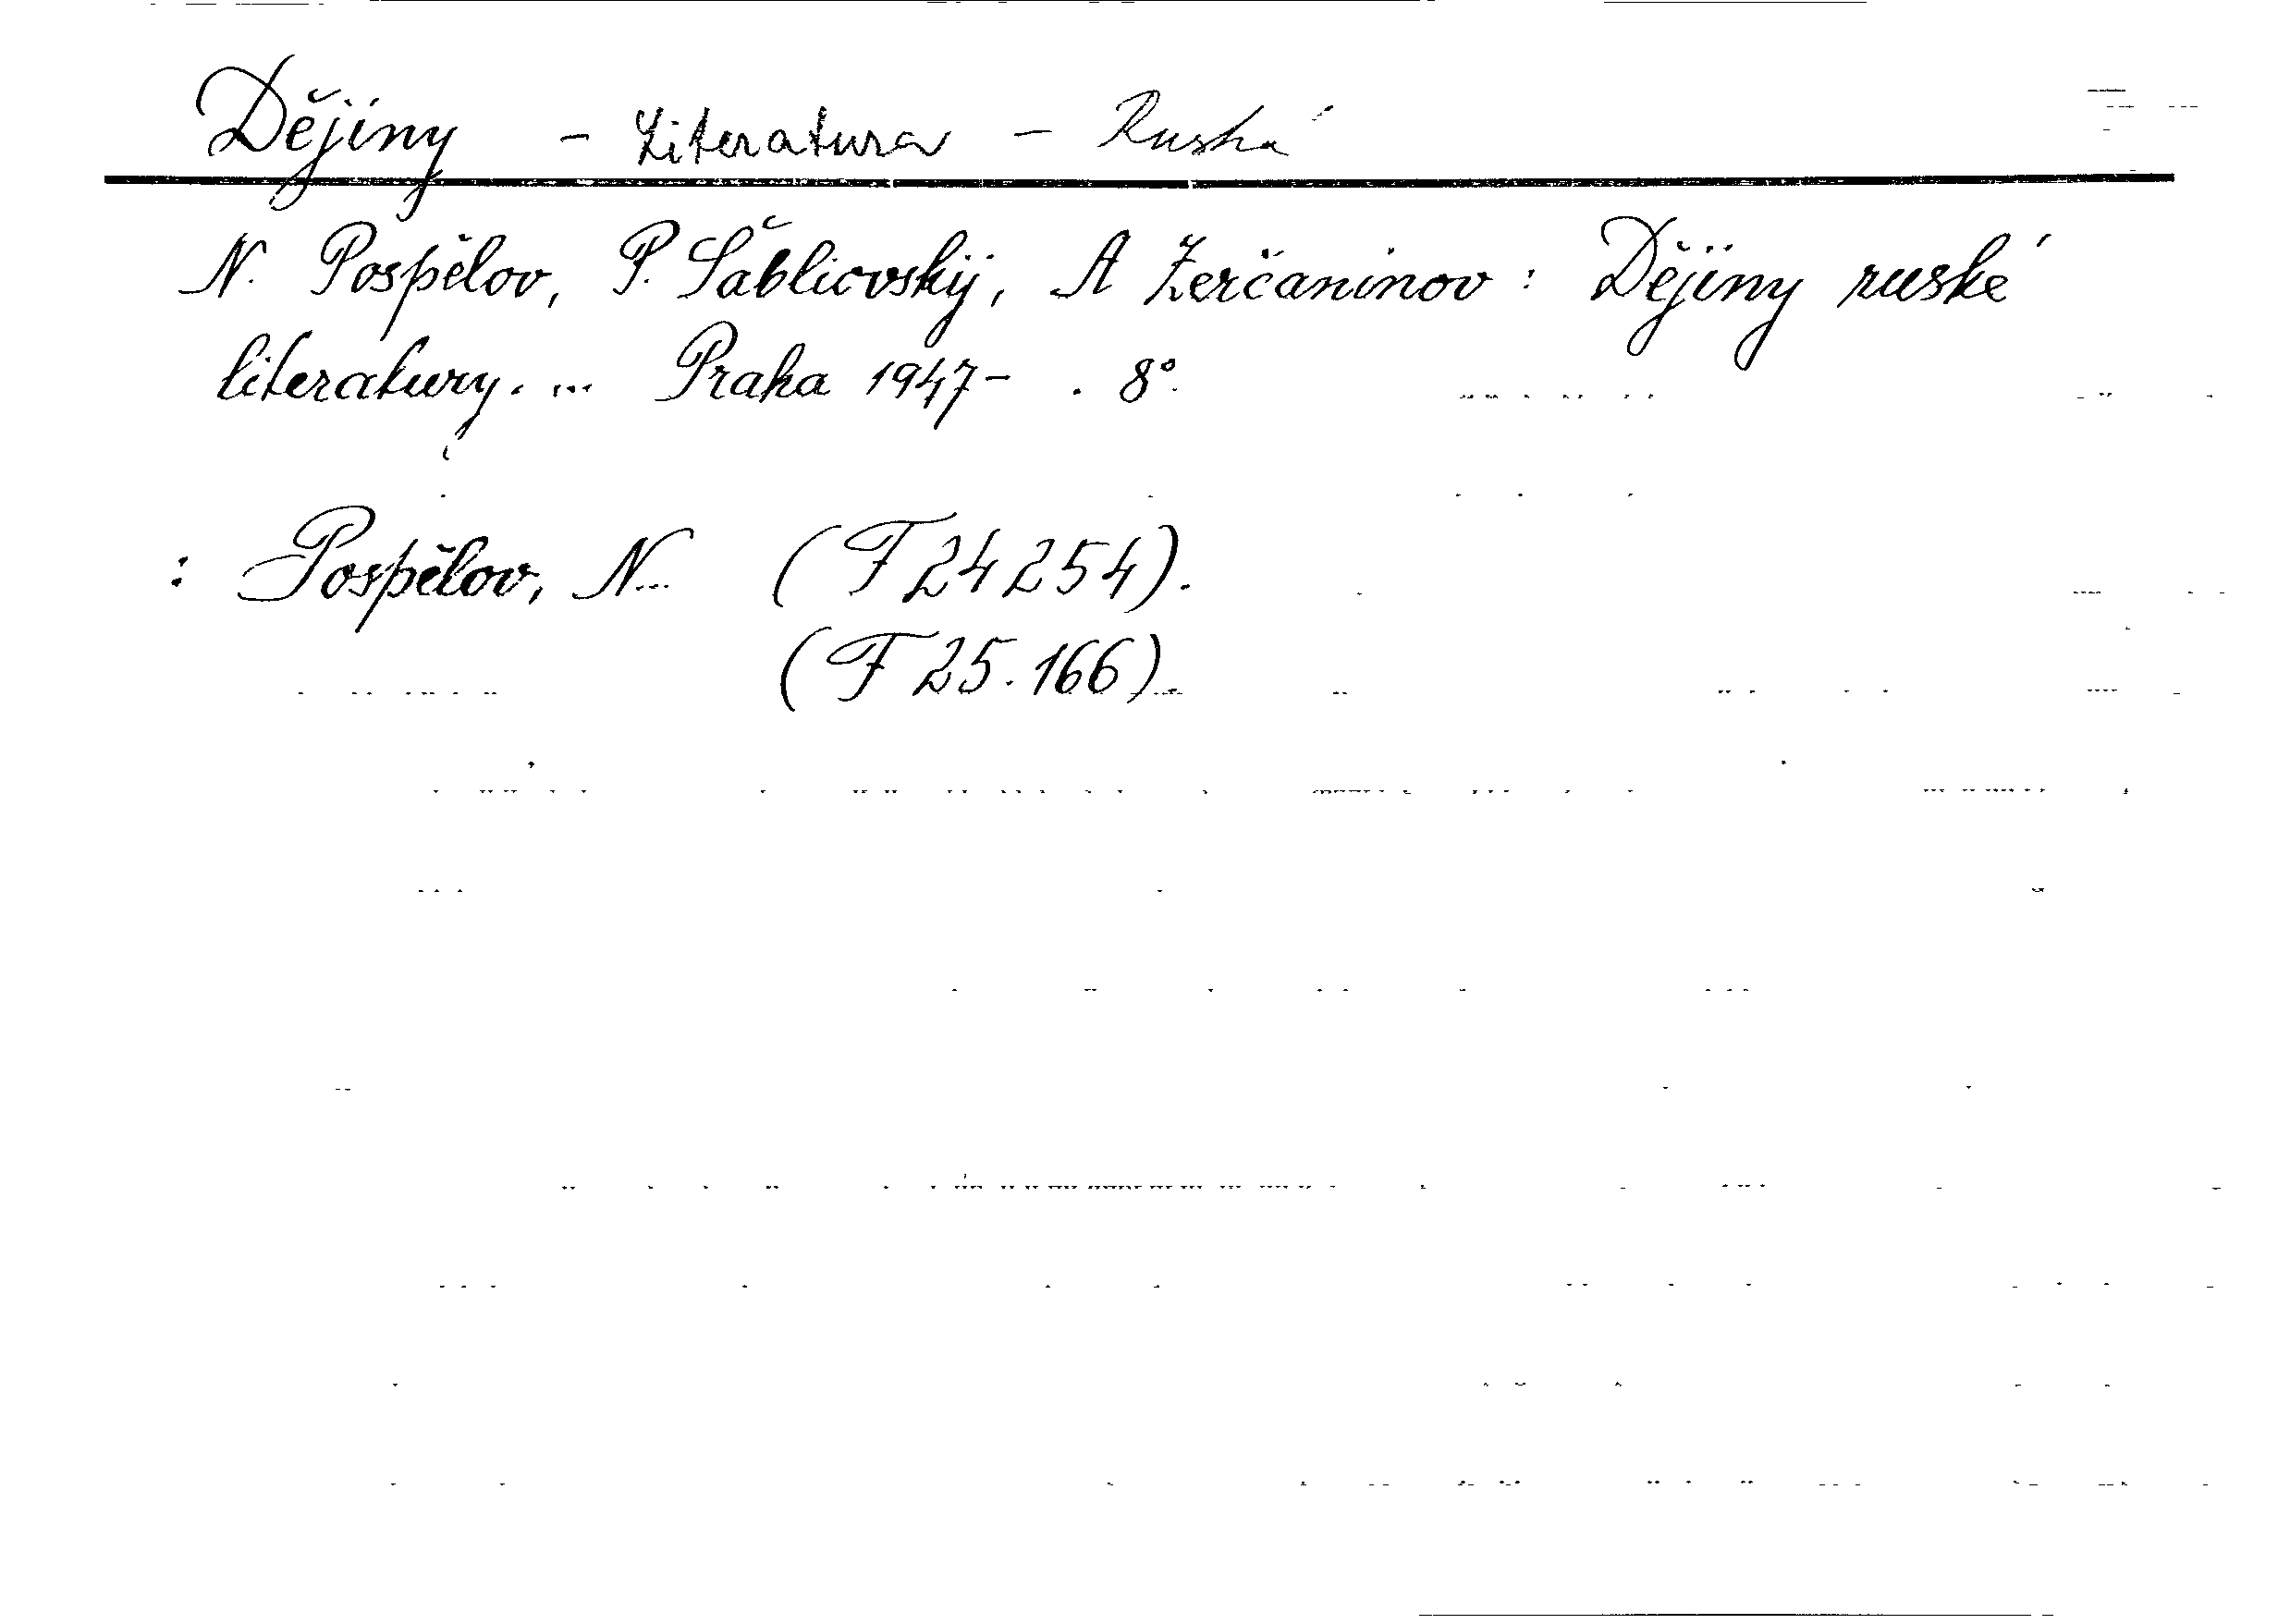 Dějiny - Literatura - Ruská
N. Pospělov, P. Šabliovský, A Zerčaninov : Dějiny ruské
literatury. ... Praha 1947- . 8°.
: Pospělov, N... (F 24254).
(F 25.166).